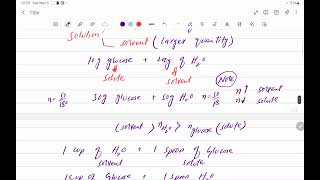 Title
solution
solvent (larger quantity)
10g glucose + 20g of H₂O
solute solvent
Note
n = 50/180 50g glucose + 50g H₂O n = 50/18 n↑ solvent
n↓ solute
(solvent) n H₂O > n glucose (solute)
1 cup of H₂O + 1 spoon of Glucose
solvent solute
1 cup of Glucose + 1 spoon H₂O